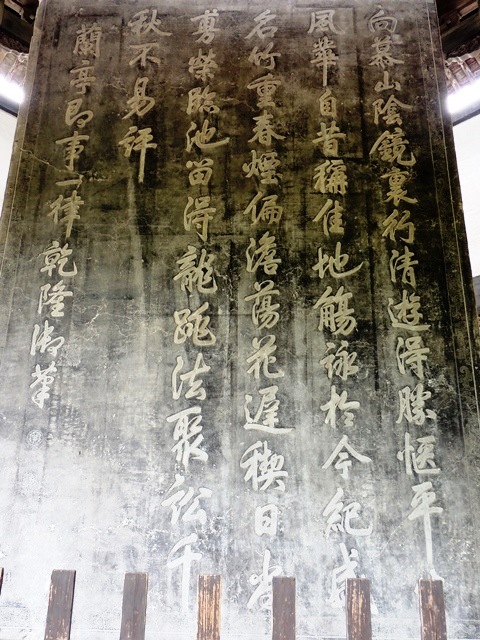 向慕山陰鏡裏行清遊得勝愜平
風華自昔稱佳地觴詠於今紀盛
名竹重春煙偏澹蕩花遲禊日尚
敷榮臨池留得龍跳法聚訟千
秋不易評
蘭亭即事一律乾隆御筆